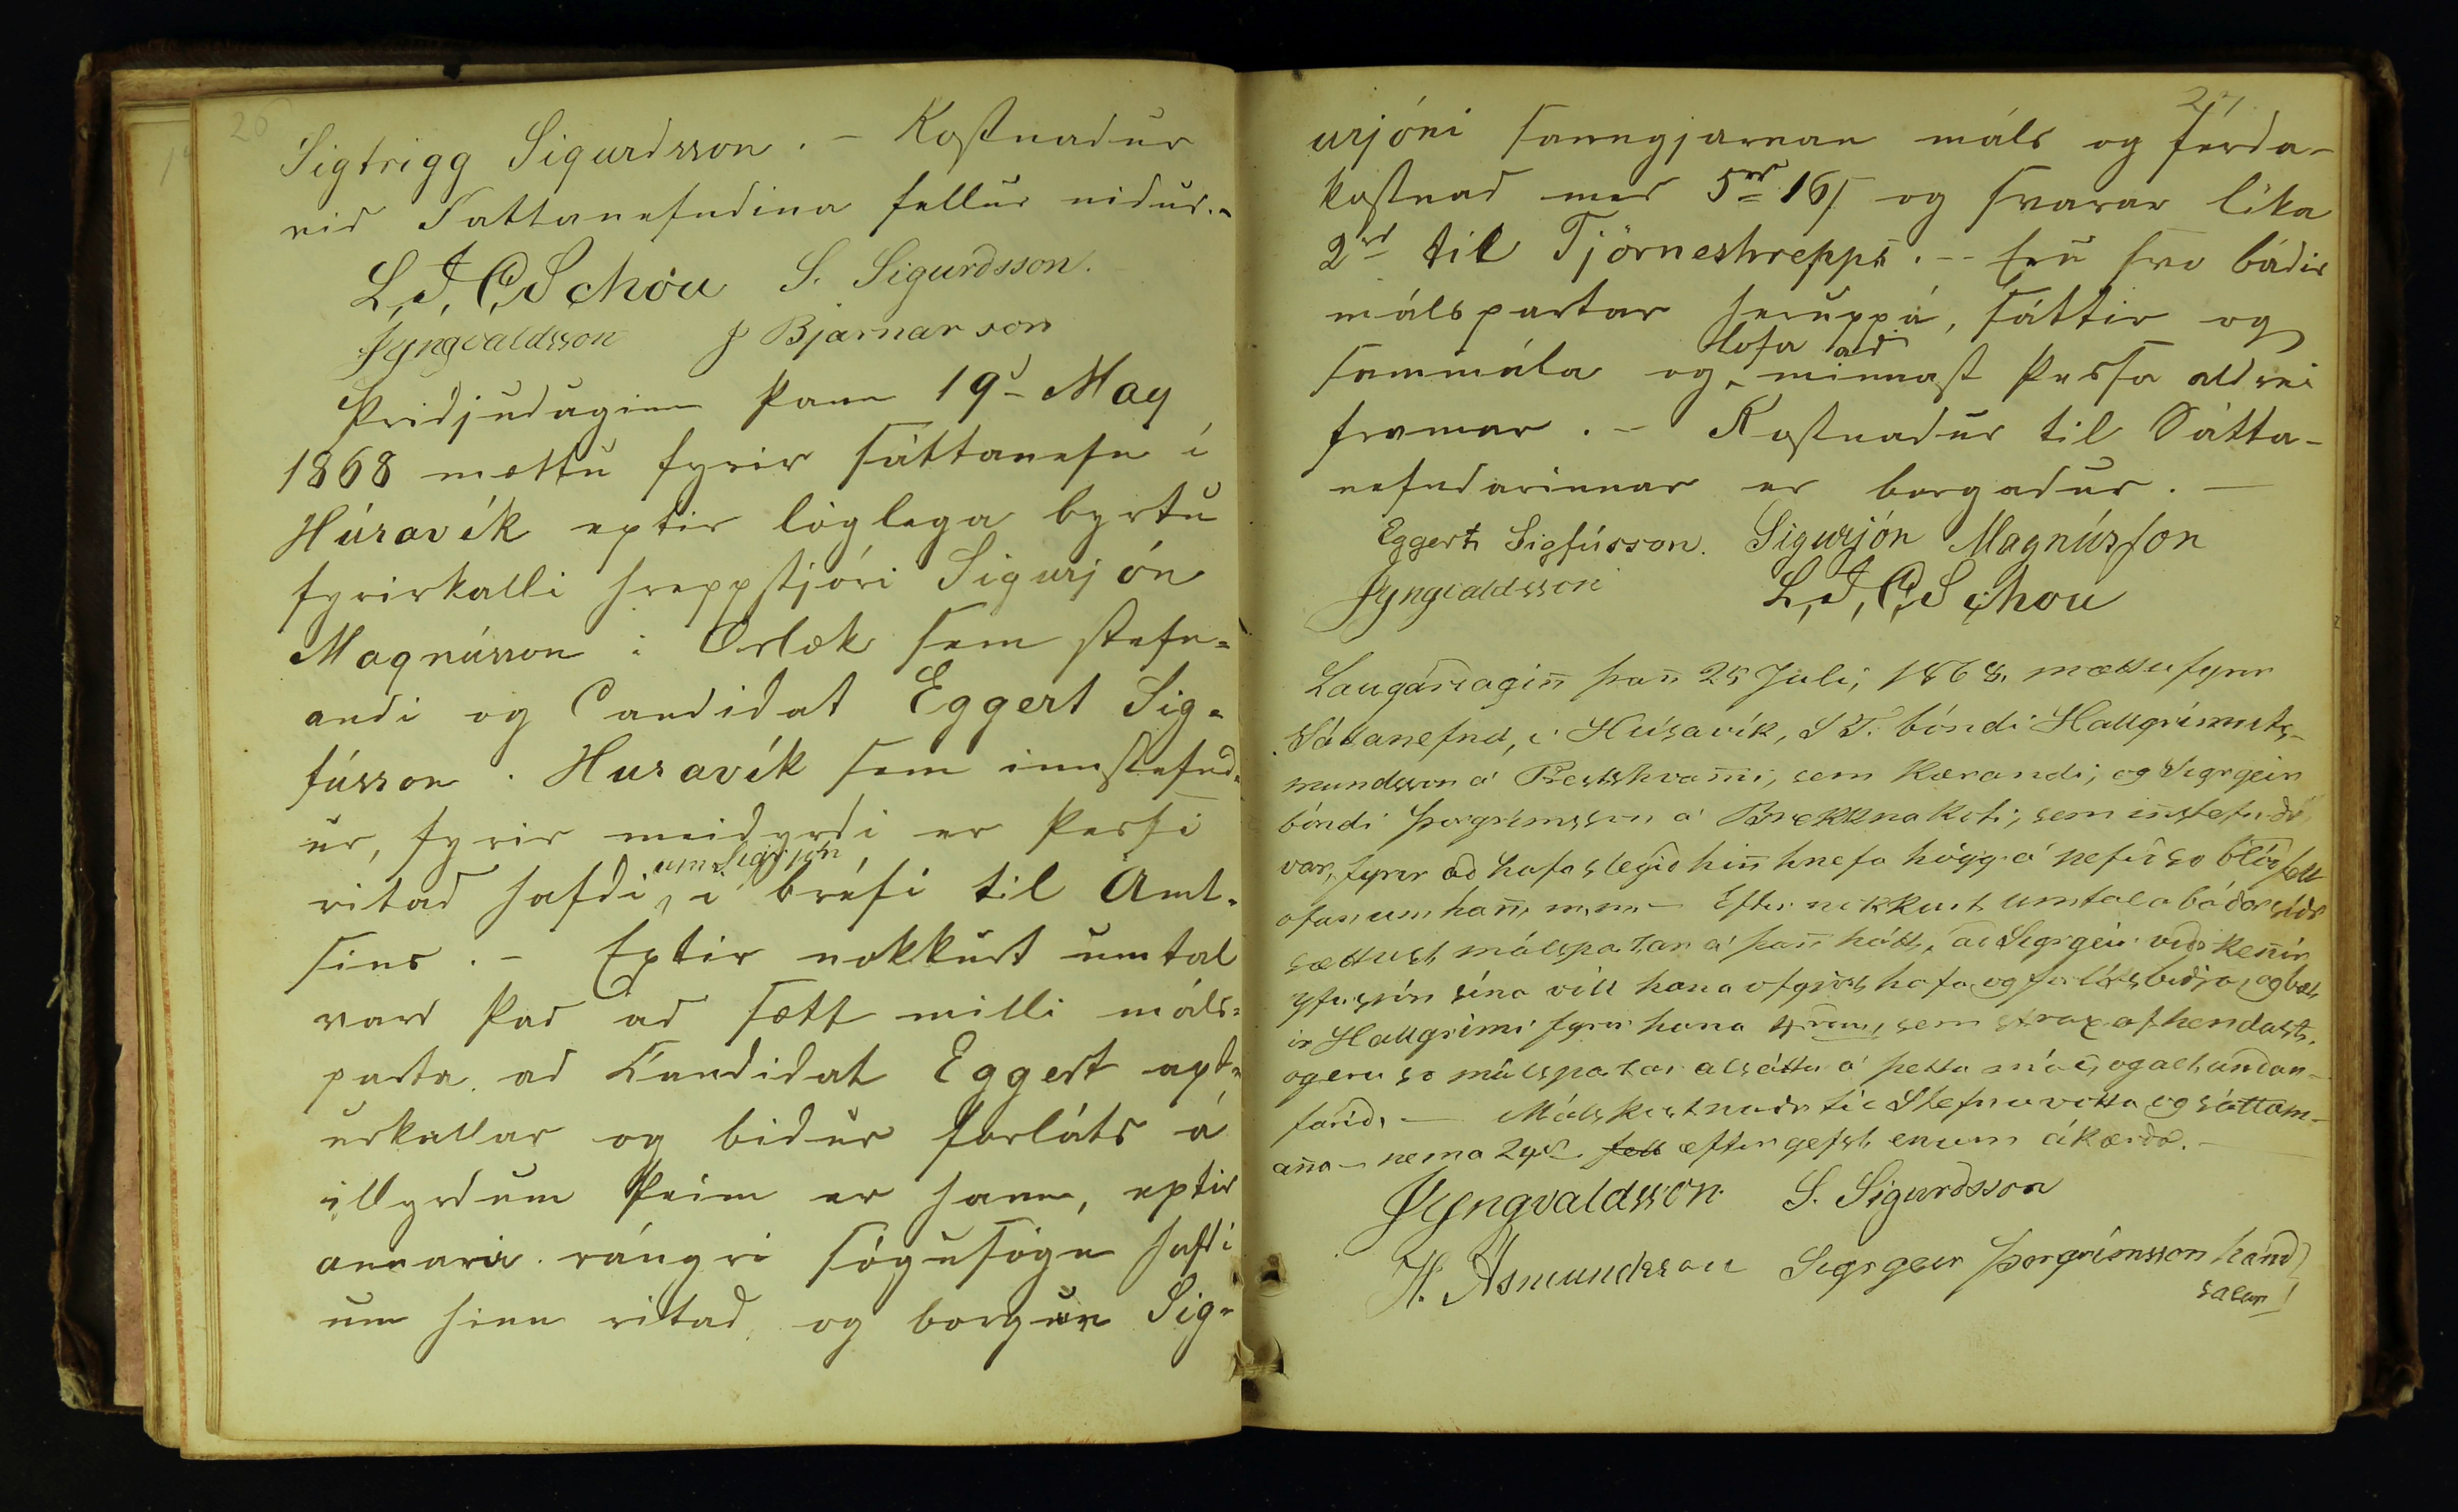 26
Sigtrigg Sigurdsson. - Kostnadur
vid Sattanefndina fellur nidur.-
L. J. C. Schou S. Sigurdsson.
JYngvaldsson J Bjarnarson
Þridjudaginn þann 19d May
1868 mættu fyrir sáttanefn í
Húsavík eptir löglega byrtu
fyrirkalli hreppstjóri Sigurjón
Magnússon í Orlæk sem stefn=
andi og Candidat Eggert Sig=
fússon . Husavík sem innstefnd=
ur, fyrir meidyrdi er þessi
ritad hafdi, um Sigurjón í bréfi til Amt=
sins . - Eptir nokkurt umtal
vard þad ad sætt milli máls=
parta ad Candidat Eggert apt=
urkallar og bidur forláts á
illyrdum þeim er hann, eptir
annara rángri sögusögn hafdi
um hinn ritad og borgur Sig=
27
urjóni sanngjarnan máls og ferda-
kostnad med 5rd 16s og svarar lika
2rd til Tjörneshrepps. -- Eru svo bádir
málspartar heruppá, sáttir og
sammála og lofa ad minnast þessa aldrei
framar . - Kostnadur til Sátta-
nefndarinnar er borgadur. -
Eggert Sigfússon. Sigurjón Magnússon
JYngvaldsson L. J. C. Schou
Laugardagin̄ þan̄ 25 Juli, 1868. mættu fyrir
Sáttanefnd, i Húsavík, ST. bóndi Hallgrímur Ás-
mundsson á Prestshvam̄i, sem kærandi, og Sigrgeir
bóndi Þorgrímsson á Brekknakoti, sem in̄stefndr
var, fyrir að hafa slegið hin̄ hnefa högg á nefið so blóð fell
ofan um han̄, m.m. - Eftir nokkurt umtal á báðar síðr
sættust málspartar á þan̄ hátt, að Sigrgeir viðrken̄ir
yfirsjón sína vill hana ofgjört hafa og forláts biðja, og bæt
ir Hallgrími fyrir hana 4 rd, sem strax afhendast,
og eru so málspartar alsáttir á þetta mál, og alt undan-
farið. - Málskostnaðr til Stefnuvotta og sáttam-
an̄a - nema 24s. eftirgefst enum ákærða. -
JYngvaldsson. S. Sigurdsson
H. Ásmundsson Sigrgeir Þorgrímsson hand
salar